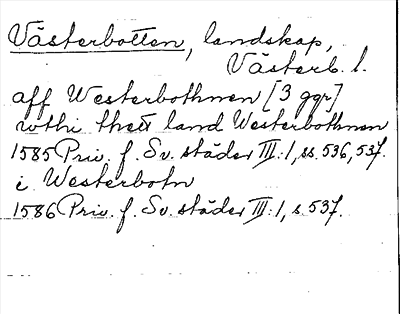 Västerbotten, landskap,
Västerb. l.
aff Westerbothnen [3 ggr]
wthi thett land Westerbothnen
1585 Priv. f. Sv. städer III:1, ss. 536, 537.
i Westerbotn
1586 Priv. f. Sv. städer III:1, s. 537.